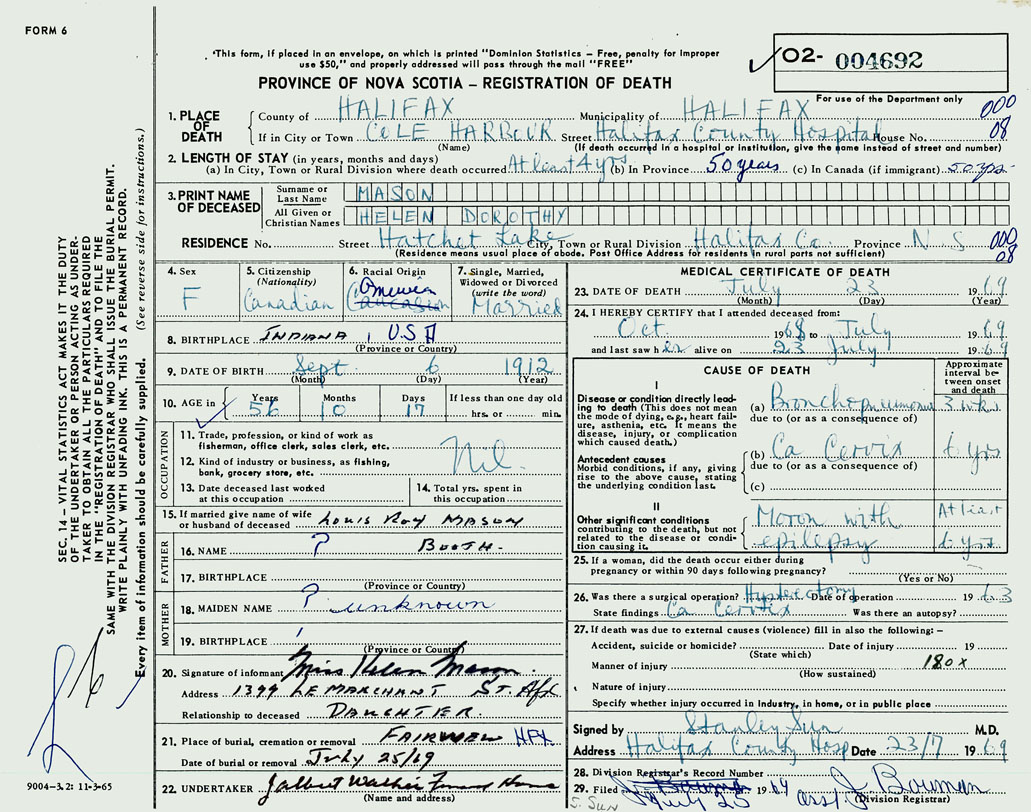 FORM 6
"This form, if placed in an envelope, on which is printed "Dominion Statistics – Free, penalty for improper
use $50," and properly addressed will pass through the mail "FREE"
O2- 004692
For use of the Department only
PROVINCE OF NOVA SCOTIA – REGISTRATION OF DEATH
1. PLACE OF DEATH
County of HALIFAX Municipality of HALIFAX 000
If in City or Town COLE HARBOUR Street Halifax County Hospital House No. 08
(Name) (If death occurred in a hospital or institution, give the name instead of street and number)
2. LENGTH OF STAY (in years, months and days)
(a) In City, Town or Rural Division where death occurred At least 4 yrs (b) In Province 50 years (c) In Canada (if immigrant) 50 yrs.
3. PRINT NAME OF DECEASED
Surname or Last Name MASON
All Given or Christian Names HELEN DOROTHY
RESIDENCE No. Street Hatchet Lake City, Town or Rural Division Halifax Co. Province N S 000
08
(Residence means usual place of abode. Post Office Address for residents in rural parts not sufficient)
4. Sex
F
5. Citizenship
(Nationality)
Canadian
6. Racial Origin
Caucasian
7. Single, Married, Widowed or Divorced
(write the word)
Married
8. BIRTHPLACE INDIANA, USA
(Province or Country)
9. DATE OF BIRTH Sept 6 1912
(Month) (Day) (Year)
10. AGE in Years Months Days If less than one day old
56 10 17 hrs. or min.
OCCUPATION
11. Trade, profession, or kind of work as
fisherman, office clerk, sales clerk, etc.
Nil.
12. Kind of industry or business, as fishing,
bank, grocery store, etc.
13. Date deceased last worked
at this occupation
14. Total yrs. spent in
this occupation
15. If married give name of wife
or husband of deceased LOUIS ROY MASON
FATHER
16. NAME ? BOOTH.
17. BIRTHPLACE
(Province or Country)
MOTHER
18. MAIDEN NAME ? unknown
19. BIRTHPLACE
(Province or Country)
20. Signature of informant Miss Helen Mason.
Address 1399 LE MARCHANT ST.
Relationship to deceased DAUGHTER.
21. Place of burial, cremation or removal FAIRVIEW HFX
Date of burial or removal July 25/69
22. UNDERTAKER
(Name and address)
MEDICAL CERTIFICATE OF DEATH
23. DATE OF DEATH July 23 1969
(Month) (Day) (Year)
24. I HEREBY CERTIFY that I attended deceased from:
Oct. 1968 to July 1969
and last saw her alive on 23 July 1969
CAUSE OF DEATH
Approximate interval between onset and death
I
Disease or condition directly leading to death (This does not mean the mode of dying, e.g., heart failure, asthenia, etc. It means the disease, injury, or complication which caused death.)
(a) Bronchopneumonia 3 wks
due to (or as a consequence of)
Antecedent causes
Morbid conditions, if any, giving rise to the above cause, stating the underlying condition last.
(b) Ca Cervix 6 yrs
due to (or as a consequence of)
(c)
II
Other significant conditions contributing to the death, but not related to the disease or condition causing it.
Moron with At least
epilepsy 6 yrs
25. If a woman, did the death occur either during
pregnancy or within 90 days following pregnancy?
(Yes or No)
26. Was there a surgical operation? Hysterectomy Date of operation 1963
State findings Ca Cervix Was there an autopsy?
27. If death was due to external causes (violence) fill in also the following: –
Accident, suicide or homicide? Date of injury 19
(State which)
Manner of injury 180X
(How sustained)
Nature of injury
Specify whether injury occurred in Industry, in home, or in public place
Signed by Stanley Sun M.D.
Address Halifax County Hosp Date 23/7 1969
28. Division Registrar's Record Number
29. Filed July 25 1969 J. Bauman
(Division Registrar)
S. SUN
SEC. 14 – VITAL STATISTICS ACT MAKES IT THE DUTY
OF THE UNDERTAKER OR PERSON ACTING AS UNDER-
TAKER TO OBTAIN ALL THE PARTICULARS REQUIRED
IN THE "REGISTRATION OF DEATH" AND TO FILE THE
SAME WITH THE DIVISION REGISTRAR WHO SHALL ISSUE THE BURIAL PERMIT.
WRITE PLAINLY WITH UNFADING INK. THIS IS A PERMANENT RECORD.
Every item of information should be carefully supplied. (See reverse side for instructions.)
9004–3.2: 11-3-65